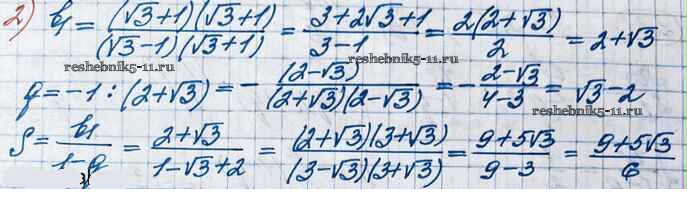 2) b₁ = (√3+1)(√3+1) / (√3−1)(√3+1) = 3+2√3+1 / 3−1 = 2(2+√3) / 2 = 2+√3
reshebnik5-11.ru reshebnik5-11.ru
q = −1 : (2+√3) = − (2−√3) / (2+√3)(2−√3) = − 2−√3 / 4−3 = √3−2
reshebnik5-11.ru reshebnik5-11.ru
S = b₁ / 1−q = 2+√3 / 1−√3+2 = (2+√3)(3+√3) / (3−√3)(3+√3) = 9+5√3 / 9−3 = 9+5√3 / 6